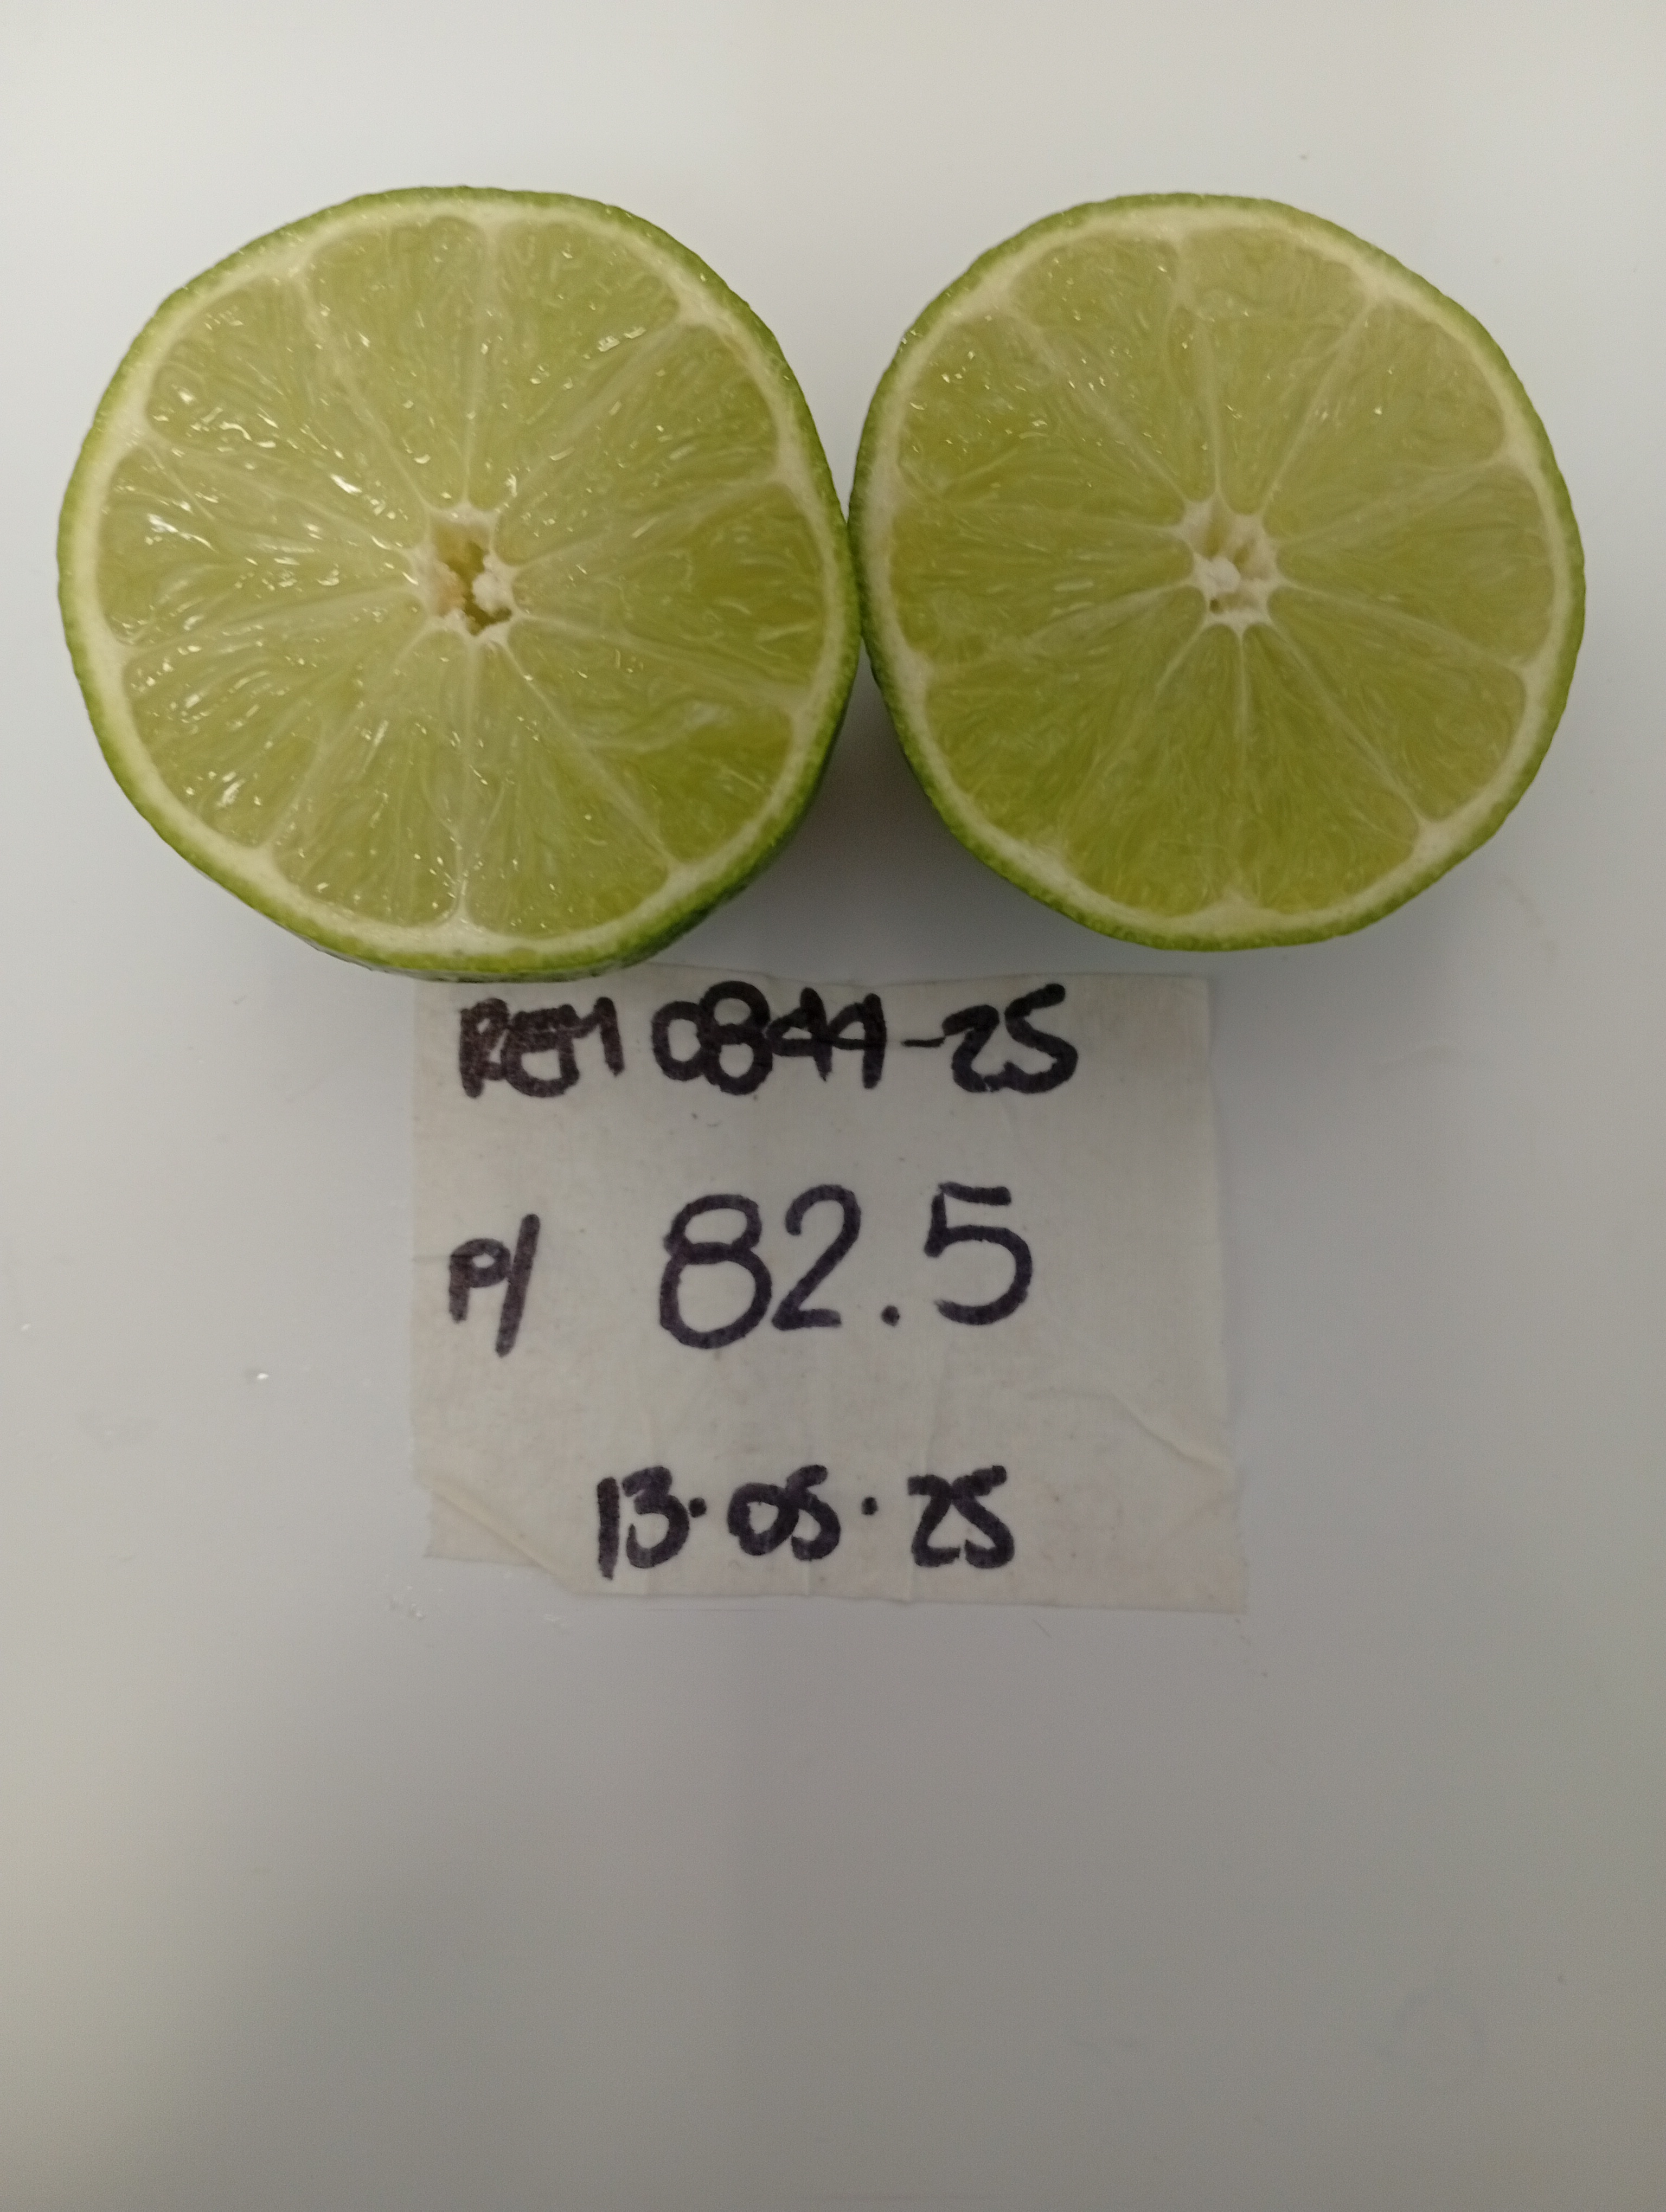 REM 0844-25
P/ 82.5
13.05.25